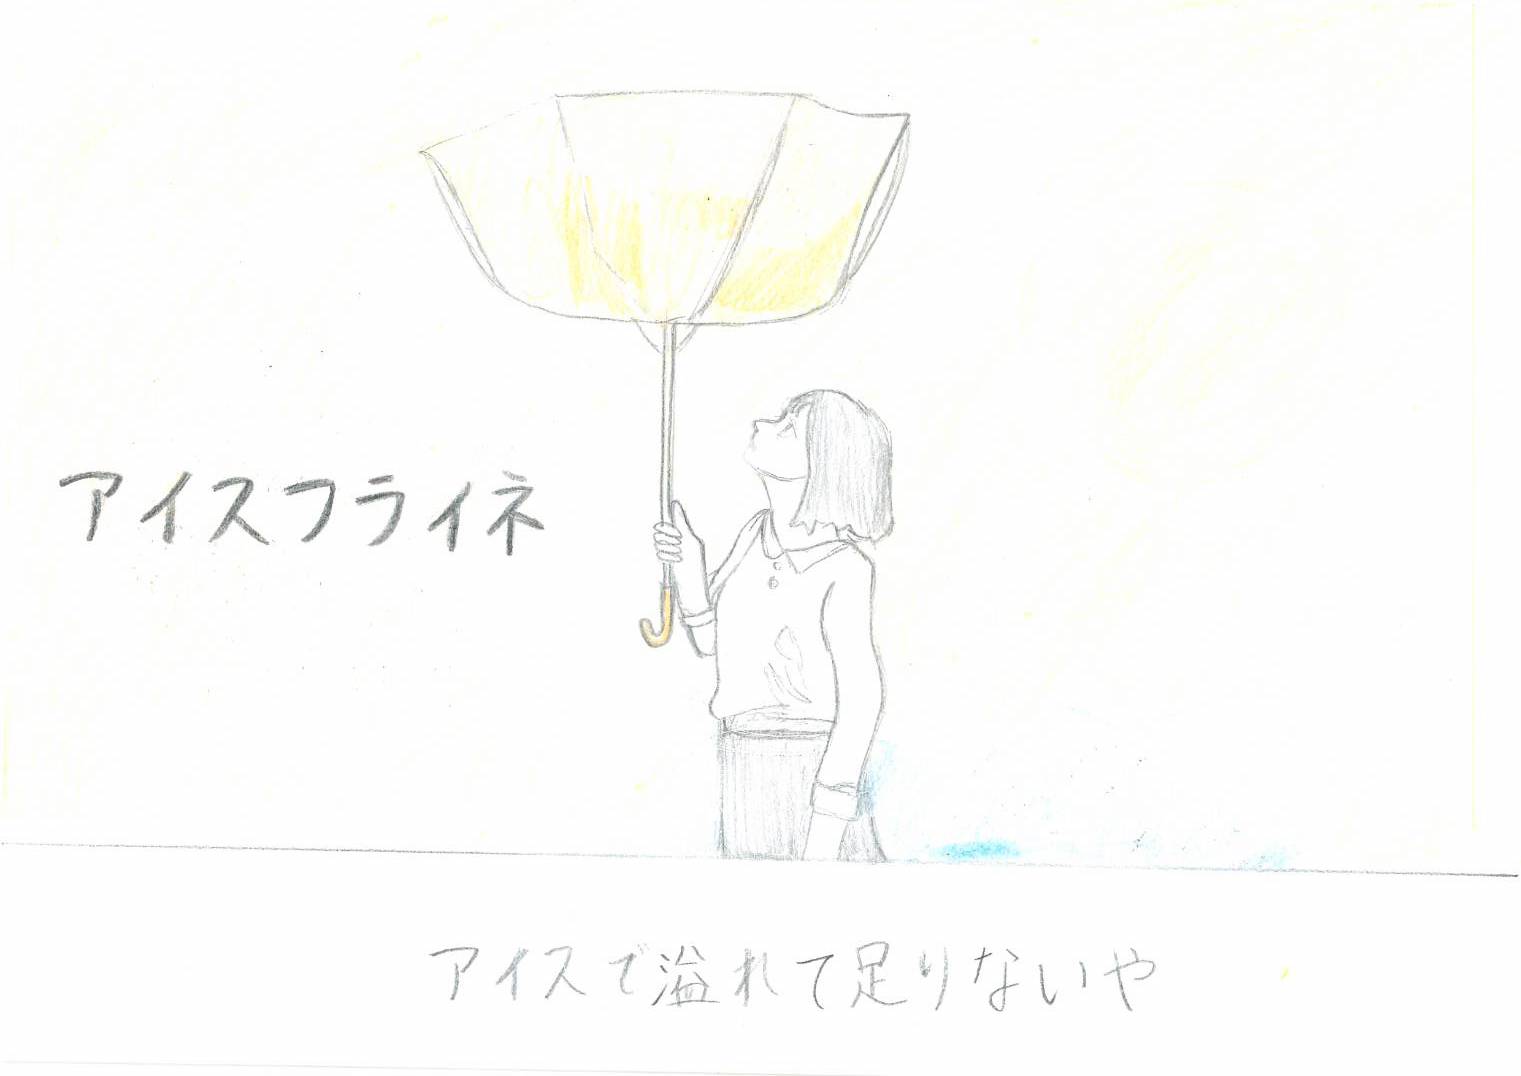 アイスフライネ
アイスで溢れて足りないや